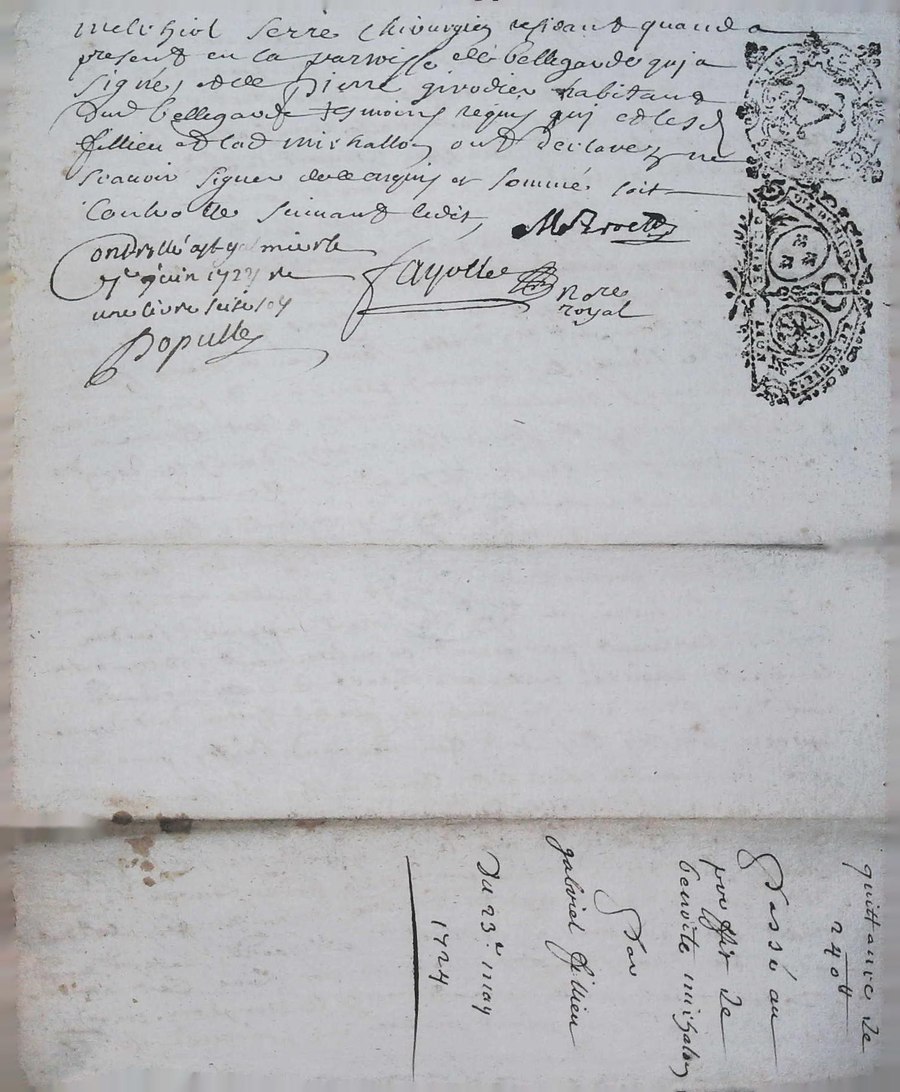 melchiol serre chirurgien residant quand a
present en la parroisse de bellegarde qui a
signé, et de pierre girodier habitant
dud bellegarde tesmoins requis qui et lesd
fillieu et lad michallon ont declarez ne
scavoir signer de ce enquis et sommé soit
Controlle suivant ledit,
Controllé a st galmier le
juin 1724 re
une livre seise sols
Fayolle
No.re
royal
Populle
quittance de
240 ₶
Passé au
proffit de
benoite michalon
Par
gabriel fillieu
Du 23.e may
1724